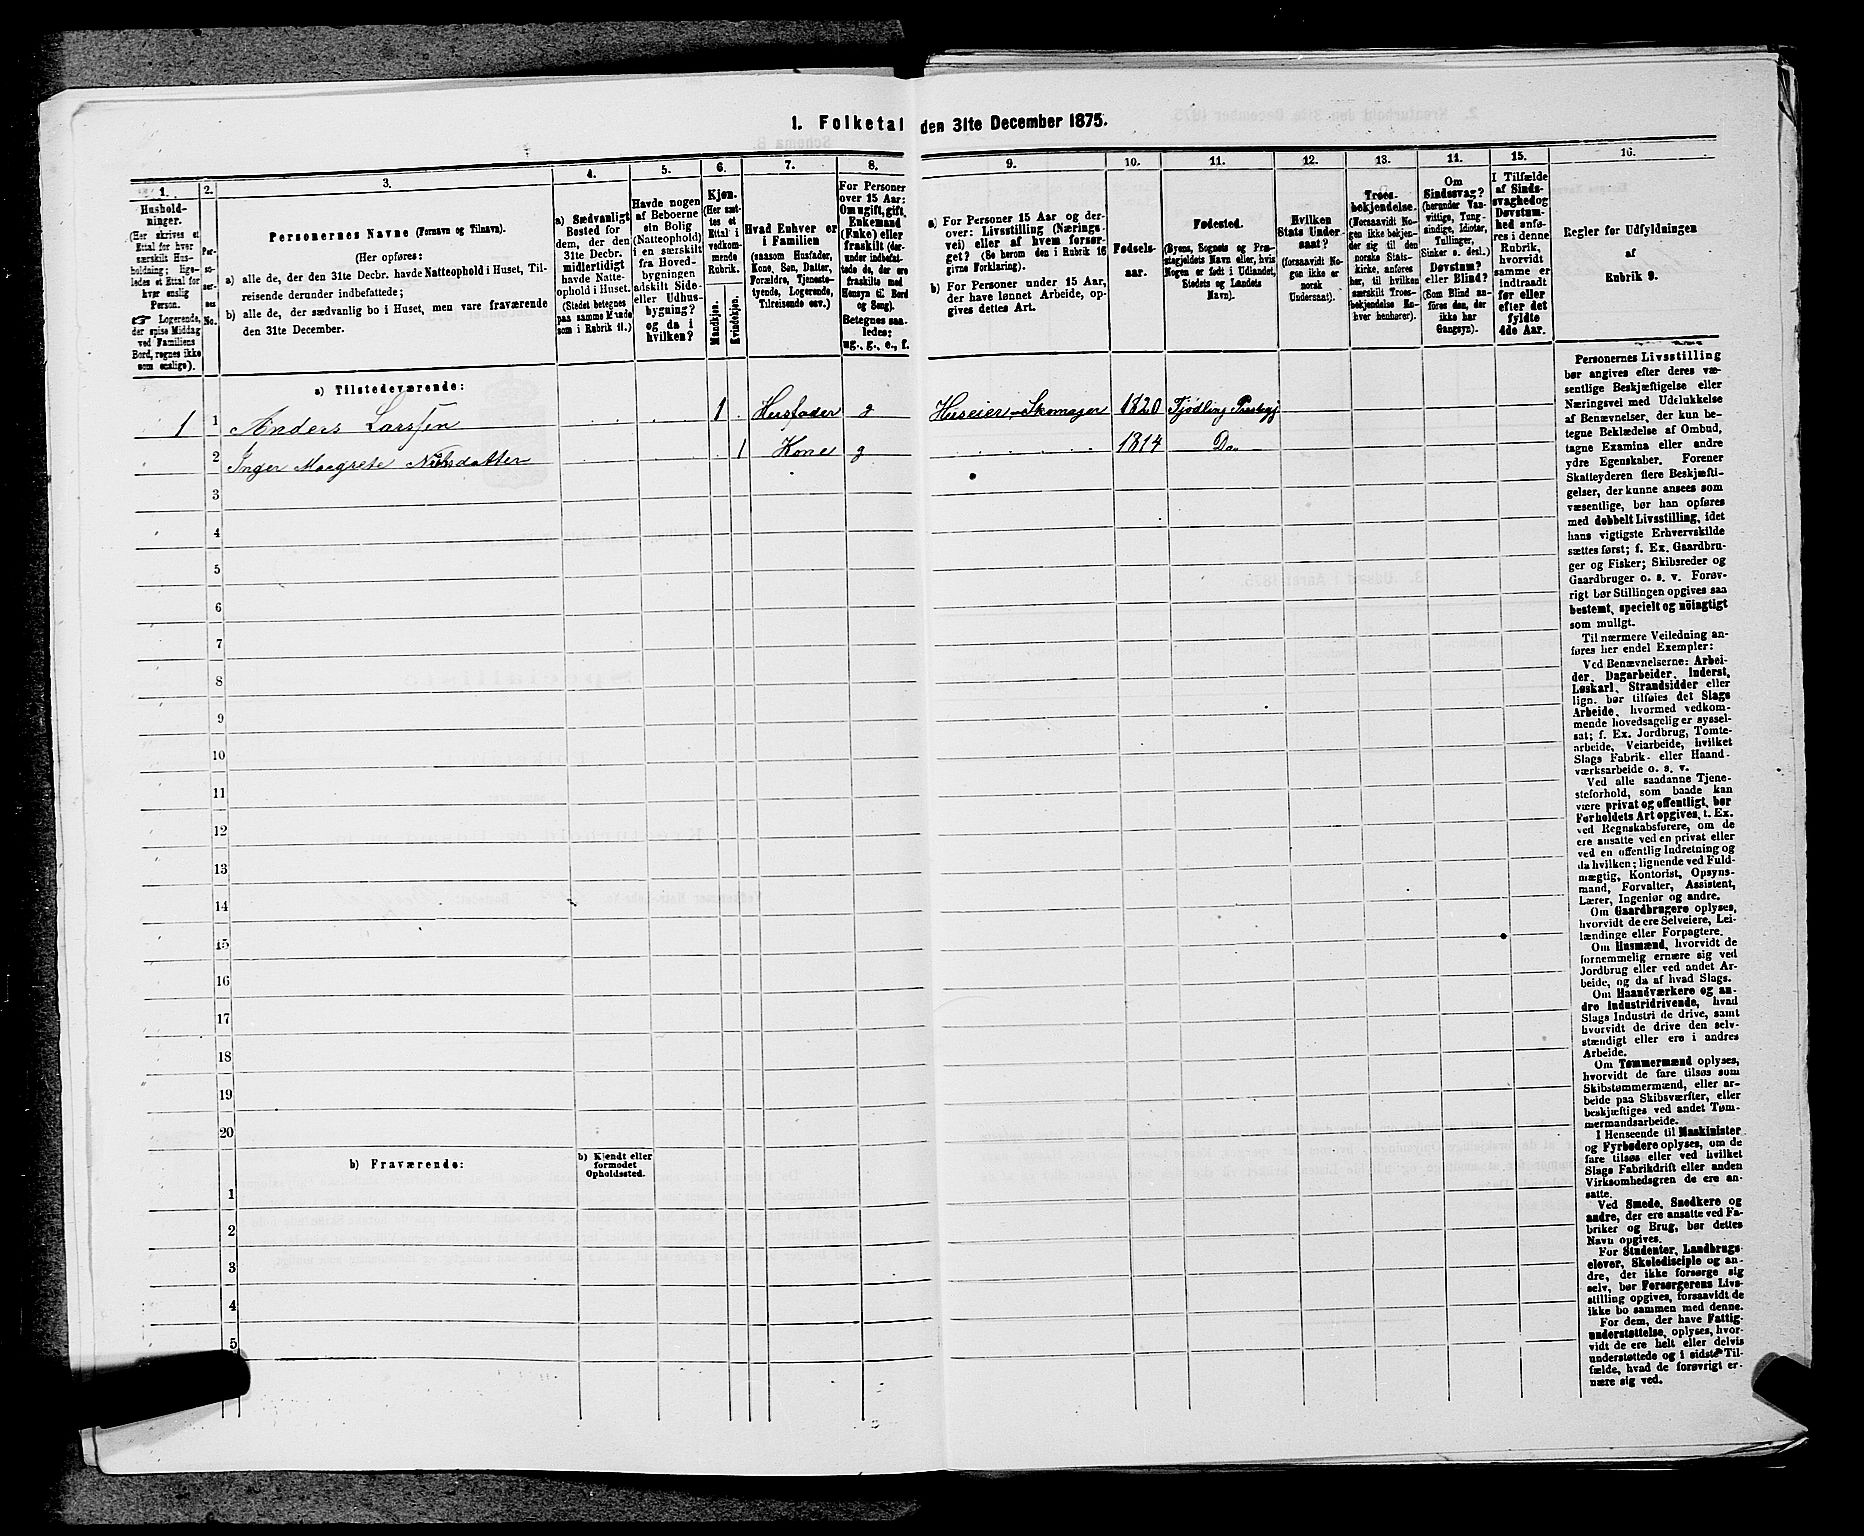 1. Folketal den 31te December 1875.
1.
2.
3.
4.
5.
6.
7.
8.
9.
10.
11.
12.
13.
14.
15.
16.
Husholdninger.
(Her skrives et
Ettal for hver
særskilt Husholdning;
ligeledes et Ettal for
hver enslig
Person.
☞ Logerende,
der spise Middag
ved Familiens
Bord, regnes ikke
som enslige).
Personernes
No.
Personernes Navne (Fornavn og Tilnavn).
(Her opføres:
a) alle de, der den 31te Decbr. havde Natteophold i Huset, Tilreisende derunder indbefattede;
b) alle de, der sædvanlig bo i Huset, men vare fraværende
den 31te December.
a) Sædvanligt
Bosted for
dem, der den
31te Decbr.
midlertidigt
havde Natteophold
i Huset.
(Stedet betegnes
paa samme Maade
som i Rubrik 11.)
Havde nogen
af Beboerne
sin Bolig
(Natteophold)
i en særskilt
fra Hovedbygningen
adskilt Side-
eller Udhusbygning?
og da i
hvilken?
Kjøn.
(Her sættes et
Ettal i
vedkommende
Rubrik.
Mandkjøn.
Kvindekjøn.
Hvad Enhver er
i Familien
(saasom Husfader,
Kone, Søn, Datter,
Forældre, Tjenestetyende,
Logerende,
Tilreisende osv.)
For Personer
over 15 Aar:
Om ugift, gift,
Enkemand
(Enke) eller
fraskilt (derunder
indbefattede de, der ere
fraskilte med
Hensyn til Bord
og Seng).
Betegnes saaledes:
ug., g., e., f.
a) For Personer 15 Aar og derover:
Livsstilling (Næringsvei)
eller af hvem forsørget
(Se herom den i Rubrik 16
givne Forklaring).
b) For Personer under 15 Aar,
der have lønnet Arbeide, opgives
dettes Art.
Fødselsaar.
Fødested.
(Byens, Sognets og Præstegjeldets
Navn eller, hvis
Nogen er født i Udlandet,
Stedets og Landets
Navn).
Hvilken
Stats Undersaat?
(forsaavidt Nogen
ikke er
norsk
Undersaat).
Troesbekjendelse.
(Forsaavidt Nogen
ikke bekjender
sig til den
norske Statskirke,
anføres
her, til hvilken
særskilt Troesbekjendelse
Enhver
henhører).
Om
Sindssvag?
(herunder Vanvittige,
Tungsindige,
Idioter,
Tullinger,
Sinker o. desl.)
Døvstum?
eller Blind?
(Som Blind anføres
den, der
ikke har
Gangsyn).
I Tilfælde
af Sindssvaghed
og
Døvstumhed
anføres
i denne
Rubrik,
hvorvidt
samme er
indtraadt
før eller
efter det
fyldte
4de Aar.
Regler for Udfyldningen
af
Rubrik 9.
a) Tilstedeværende:
1 1 Anders Larssen 1 Husfader g Huseier Skomager 1820 Tjødling Prestegj
2 Inger Maagrete Nilsdatter 1 Kone g 1814 Do
3
4
5
6
7
8
9
10
11
12
13
14
15
16
17
18
19
20
b) Fraværende:
b) Kjendt eller
formodet
Opholdssted.
1
2
3
4
5
Personernes Livsstilling
bør angives efter deres væsentlige
Beskjæftigelse eller
Næringsvei med Udelukkelse
af Benævnelser, der kun betegne
Beklædelse af Ombud,
tagne Examina eller andre
ydre Egenskaber. Forener
Skatteyderen flere Beskjæftigelser,
der kunne ansees som
væsentlige, bør han opføres
med dobbelt Livsstilling, idet
hans vigtigste Erhvervskilde
sættes først; f. Ex. Gaardbruger
og Fisker; Skibsreder og
Gaardbruger o. s. v. Forøvrigt
bør Stillingen opgives saa
bestemt, specielt og nøiagtigt
som muligt.
Til nærmere Veiledning anføres
her endel Exempler:
Ved Benævnelserne: Arbeider,
Dagarbeider, Inderst,
Løskarl, Strandsidder eller
lign. bør tilføies det Slags
Arbeide, hvormed vedkommende
hovedsagelig er sysselsat;
f. Ex. Jordbrug, Tomtearbeide,
Veiarbeide, hvilket
Slags Fabrik- eller Haandværksarbeide
o. s. v.
Ved alle saadanne Tjenesteforhold,
som baade kan
være privat og offentligt, bør
Forholdets Art opgives, f. Ex.
ved Regnskabsførere, om de
ere ansatte ved en privat eller
ved en offentlig Indretning og
da hvilken; lignende ved Fuldmægtig,
Kontorist, Opsynsmand,
Forvalter, Assistent,
Lærer, Ingeniør og andre.
Om Gaardbrugere oplyses,
hvorvidt de ere Selveiere, Leilændinge
eller Forpagtere.
Om Husmænd, hvorvidt de
fornemmelig ernære sig ved
Jordbrug eller ved andet Arbeide,
og da af hvad Slags.
Om Haandværkere og andre
Industridrivende, hvad
Slags Industri de drive, samt
hvorvidt de drive den selvstændigt
eller ere i andres
Arbeide.
Om Tømmermænd oplyses,
hvorvidt de fare tilsøs som
Skibstømmermænd, eller arbeide
paa Skibsværfter, eller
beskjæftiges ved andet Tømmermandsarbeide.
I Henseende til Maskinister
og Fyrbødere oplyses, om de
fare tilsøs eller ved hvilket
Slags Fabrikdrift eller anden
Virksomhedsgren de ere ansatte.
Ved Smede, Snedkere og
andre, der ere ansatte ved Fabriker
og Brug, bør dettes
Navn opgives.
For Studenter, Landbrugselever,
Skoledisciple og andre,
der ikke forsørge sig
selv, bør Forsørgerens Livsstilling
opgives, forsaavidt de
ikke bo sammen med denne.
For dem, der have Fattigunderstøttelse,
oplyses, hvorvidt
de ere helt eller delvis
understøttede og i sidste Tilfælde,
hvad de forøvrigt ernære
sig ved.